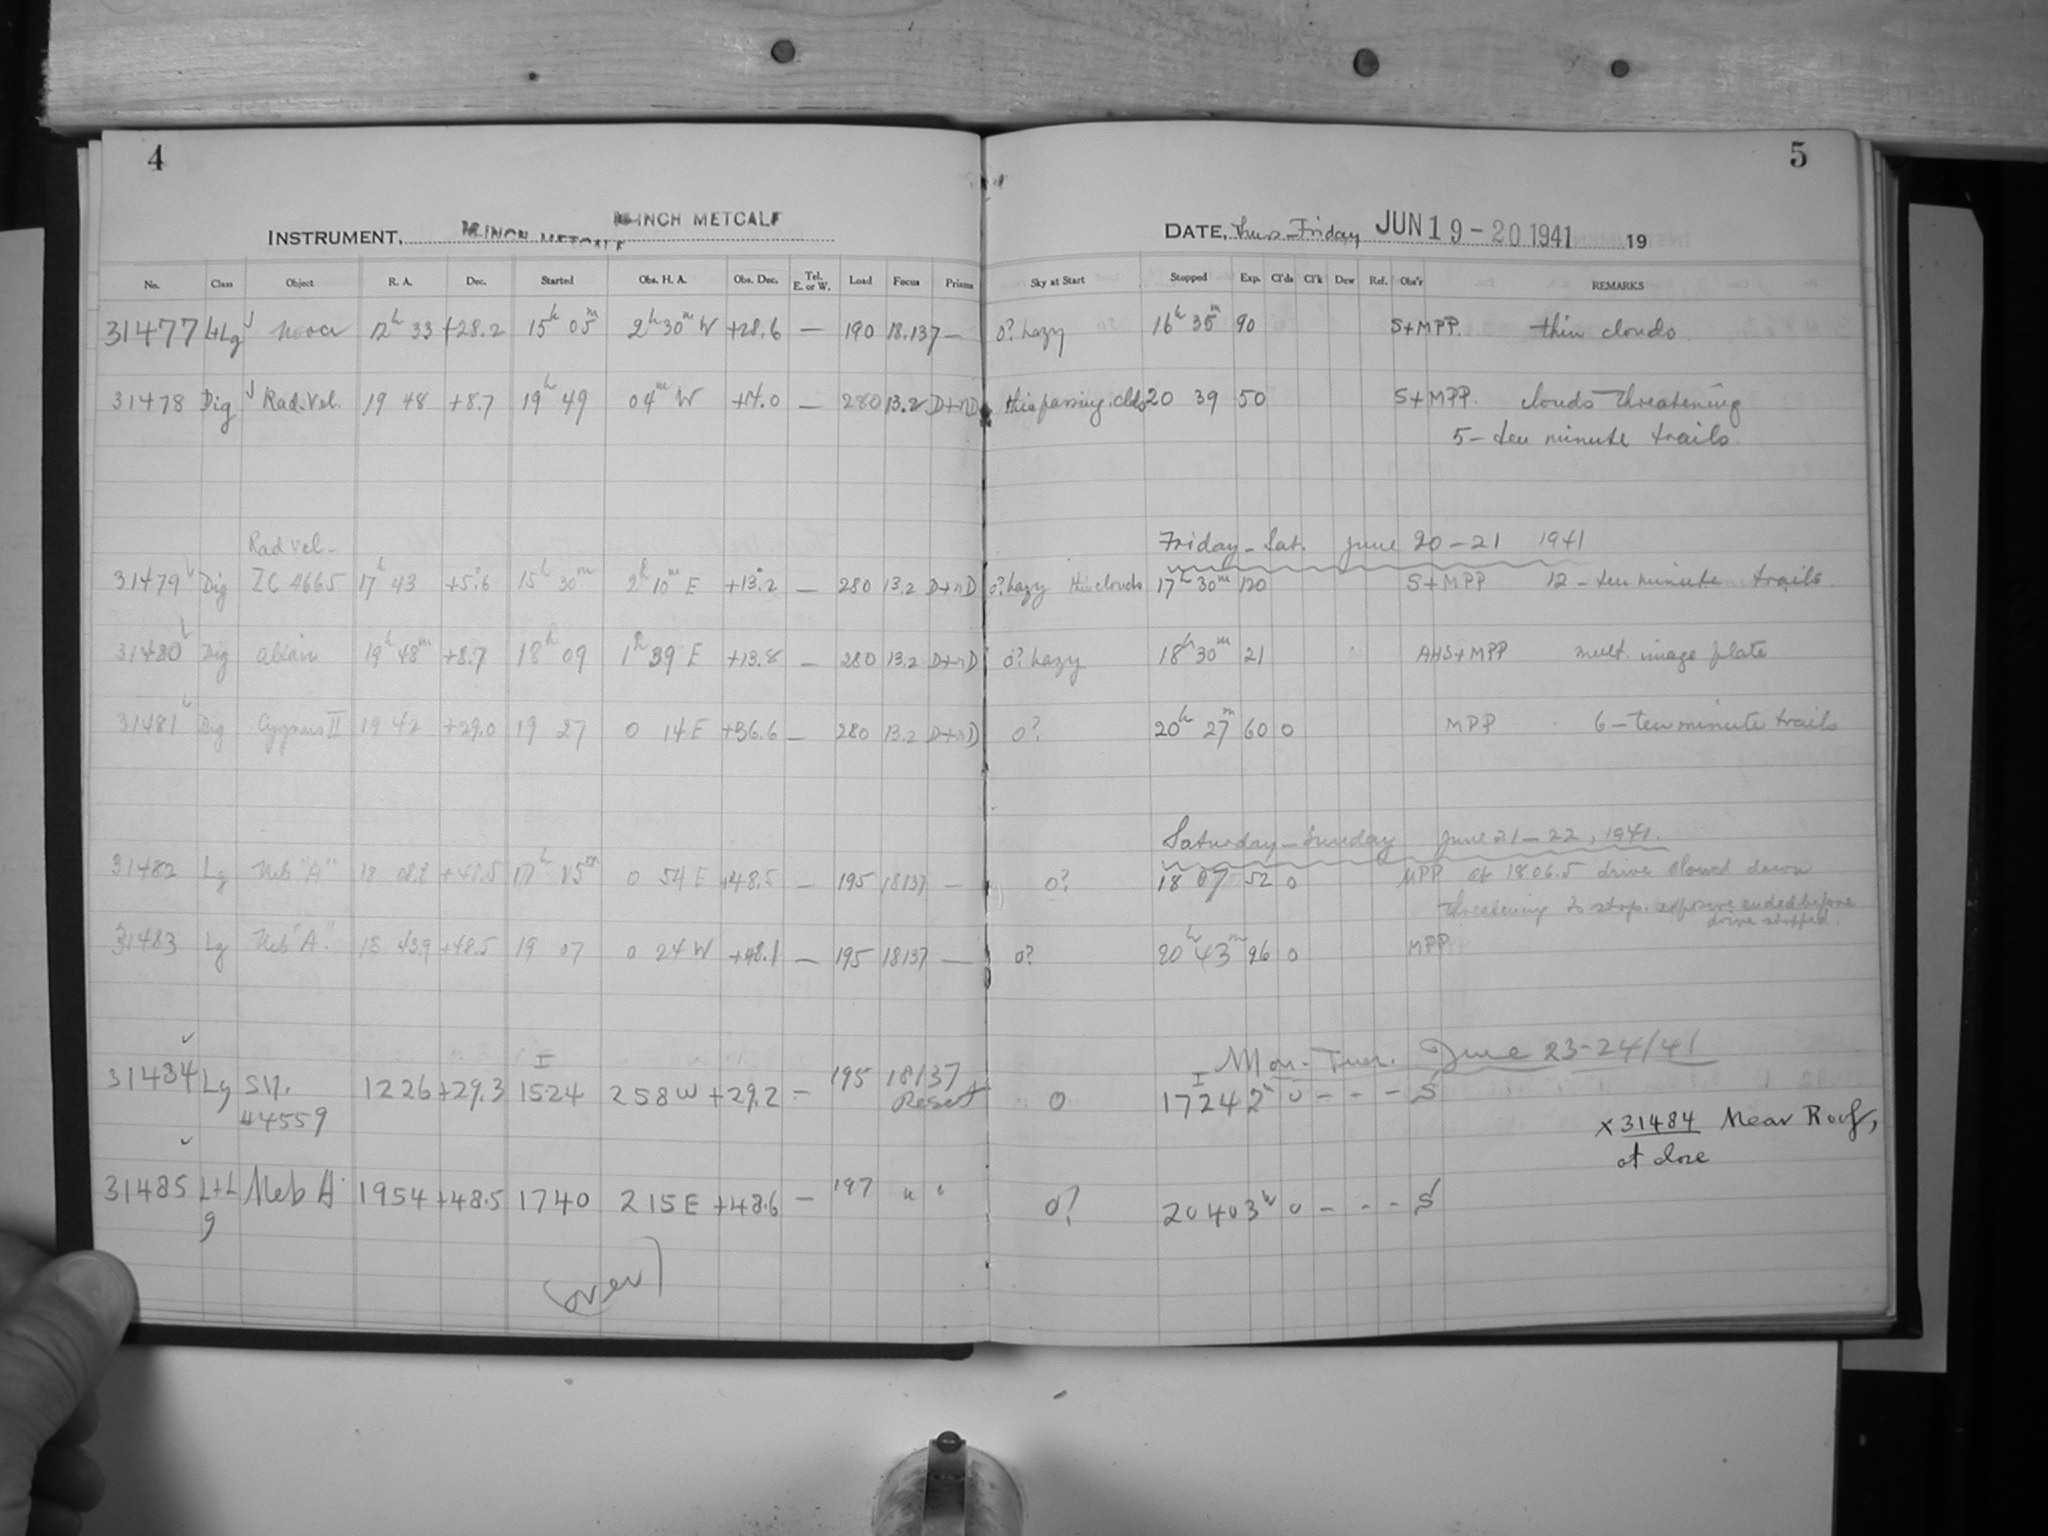 4
5
INSTRUMENT, 16-INCH METCALF 16-INCH METCALF
DATE, Thurs-Friday JUN 19-20 1941 19
No. Class Object R. A. Dec. Started Obs. H. A. Obs. Dec. Tel. E. or W. Load Focus Prisms Sky at Start Stopped Exp. Cl'ds Cl'k Dew Ref. Obs'r REMARKS
31477 L+Lg Nova 12h 33 +28.2 15h 05m 2h 30m W +28.6 — 190 18.137 — 0? hazy 16h 35m 90 S+MPP. thin clouds
31478 Dig Rad. Vel. 19 48 +8.7 19h 49 04m W +14.0 — 280 13.2 D+nD thin passing clds 20 39 50 S+MPP. clouds threatening
5- ten minute trails.
Friday - Sat. June 20-21 1941
Rad vel-
31479 Dig IC 4665 17h 43 +5.6 15h 30m 2h 10m E +13.2 — 280 13.2 D+nD 0? hazy thin clouds 17h 30m 120 S+MPP 12 - ten minute trails.
31480 Dig 19h 48m +8.7 18h 09 1h 39 E +13.8 — 280 13.2 D+nD 0? hazy 18h 30m 21 AHS+MPP mult. image plate
31481 Dig Cygnus II 19 42 +29.0 19 27 0 14 E +36.6 — 280 13.2 D+nD 0? 20h 27m 60 0 MPP 6-ten minute trails
Saturday-Sunday June 21-22, 1941.
31482 Lg Neb "A" 18 +48.5 17h 15m 0 54 E +48.5 — 195 18137 — 0? 18 07 52 0 MPP at 1806.5 drive slowed down
threatening to stop. exposure ended before
drive stopped.
31483 Lg Neb "A." 18 43.9 +48.5 19 07 0 24 W +48.1 — 195 18137 — 0? 20h 43m 96 0 MPP
Mon-Tues. June 23-24/41
31484 Lg SN. 1226 +29.3 I 1524 258 W +29.2 - 195 18137 0 I 1724 2h 0 - - - S
#4559 Reset
x 31484 Near Roof,
at close
31485 L+L Neb A 1954 +48.5 1740 215 E +48.6 - 197 " " 0? 2040 3h 0 - - - S
g
(over)